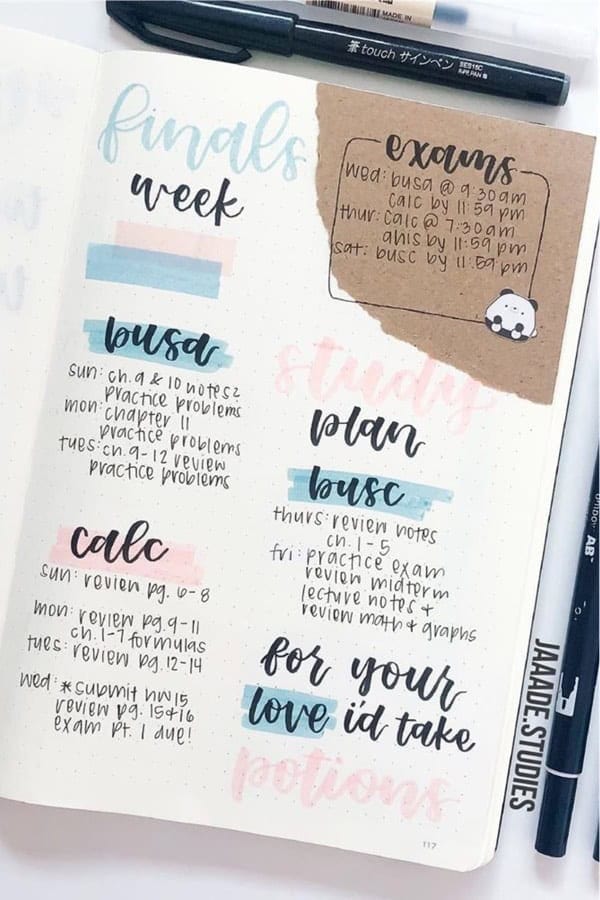 MADE IN
筆touch サインペン
SES15C
finals
week
exams
wed: busa @ 9:30am
calc by 11:59 pm
thur: calc @ 7:30am
ahis by 11:59 pm
sat: busc by 11:59 pm
busa
sun: ch.9 & 10 notes &
practice problems
mon: chapter 11
practice problems
tues: ch. 9-12 review
practice problems
calc
sun: review pg. 6-8
mon: review pg. 9-11
ch. 1-7 formulas
tues: review pg. 12-14
wed: *submit hw15
review pg. 15&16
exam pt. 1 due!
study
plan
busc
thurs: review notes
ch. 1-5
fri: practice exam
review midterm
lecture notes &
review math & graphs
for your
love i'd take
potions
117
JAAADE.STUDIES
AB